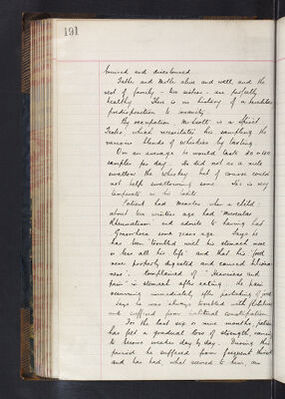 191
burned and discoloured
Father and Mother alive and well, and the
rest of family - two sisters - are perfectly
healthy. There is no history of a
predisposition to insanity
By occupation Mr Scott is a Spirit
Trader which necessitates his sampling the
various blends of whiskies by tasting
On an average he would taste 50 to 100
samples per day. He did not as a rule
swallow the whiskey but of course could
not help swallowing some. He is very
temperate in his habits
Patient had Measles when a child
about ten winters ago had Muscular
Rheumatism and admits to having had
Gonorrhoea some years ago. Says he
has been troubled with his stomach more
or less all his life and that his food
never properly digested and caused
Complained of "Heaviness and
pain" in stomach after eating. The pain
occurring immediately after partaking of food
Says he was always troubled with flatulence
and suffered from habitual constipation
For the last six or nine months, patient
has felt a gradual loss of strength, seeming
to become weaker day by day. During this
period he suffered from frequent thirst
and has had, what seemed to him, an